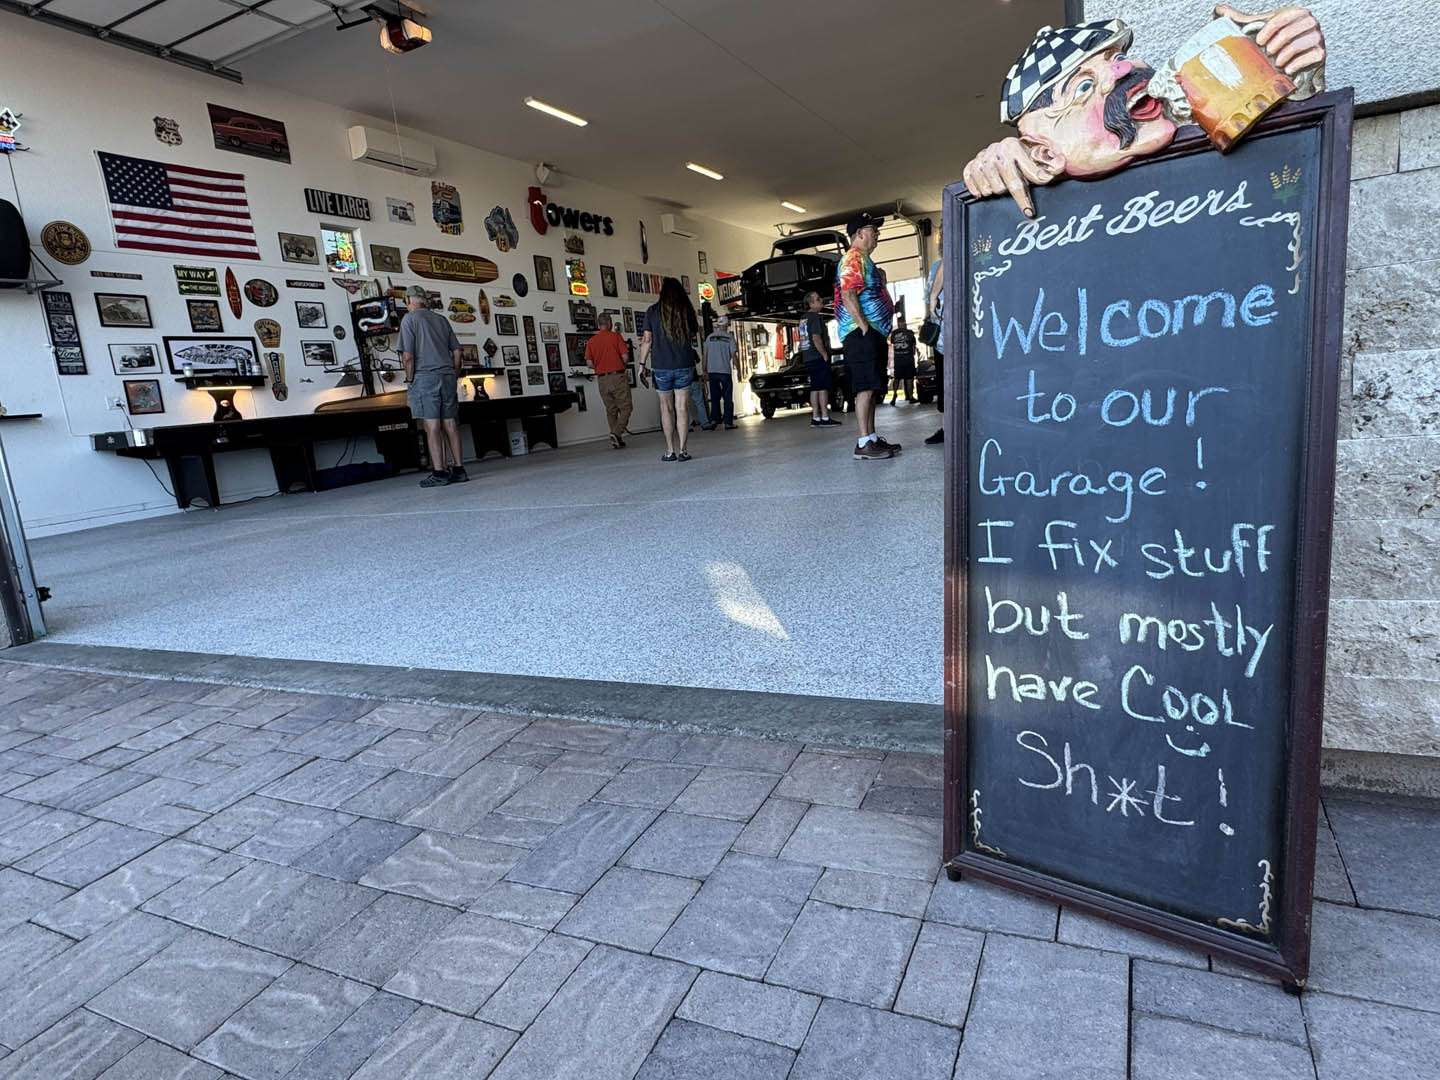 LIVE LARGE
Towers
MY WAY
THE HIGHWAY
MADE IN
WELCOME
Best Beers
Welcome
to our
Garage!
I fix stuff
but mostly
have COOL
Sh*t!